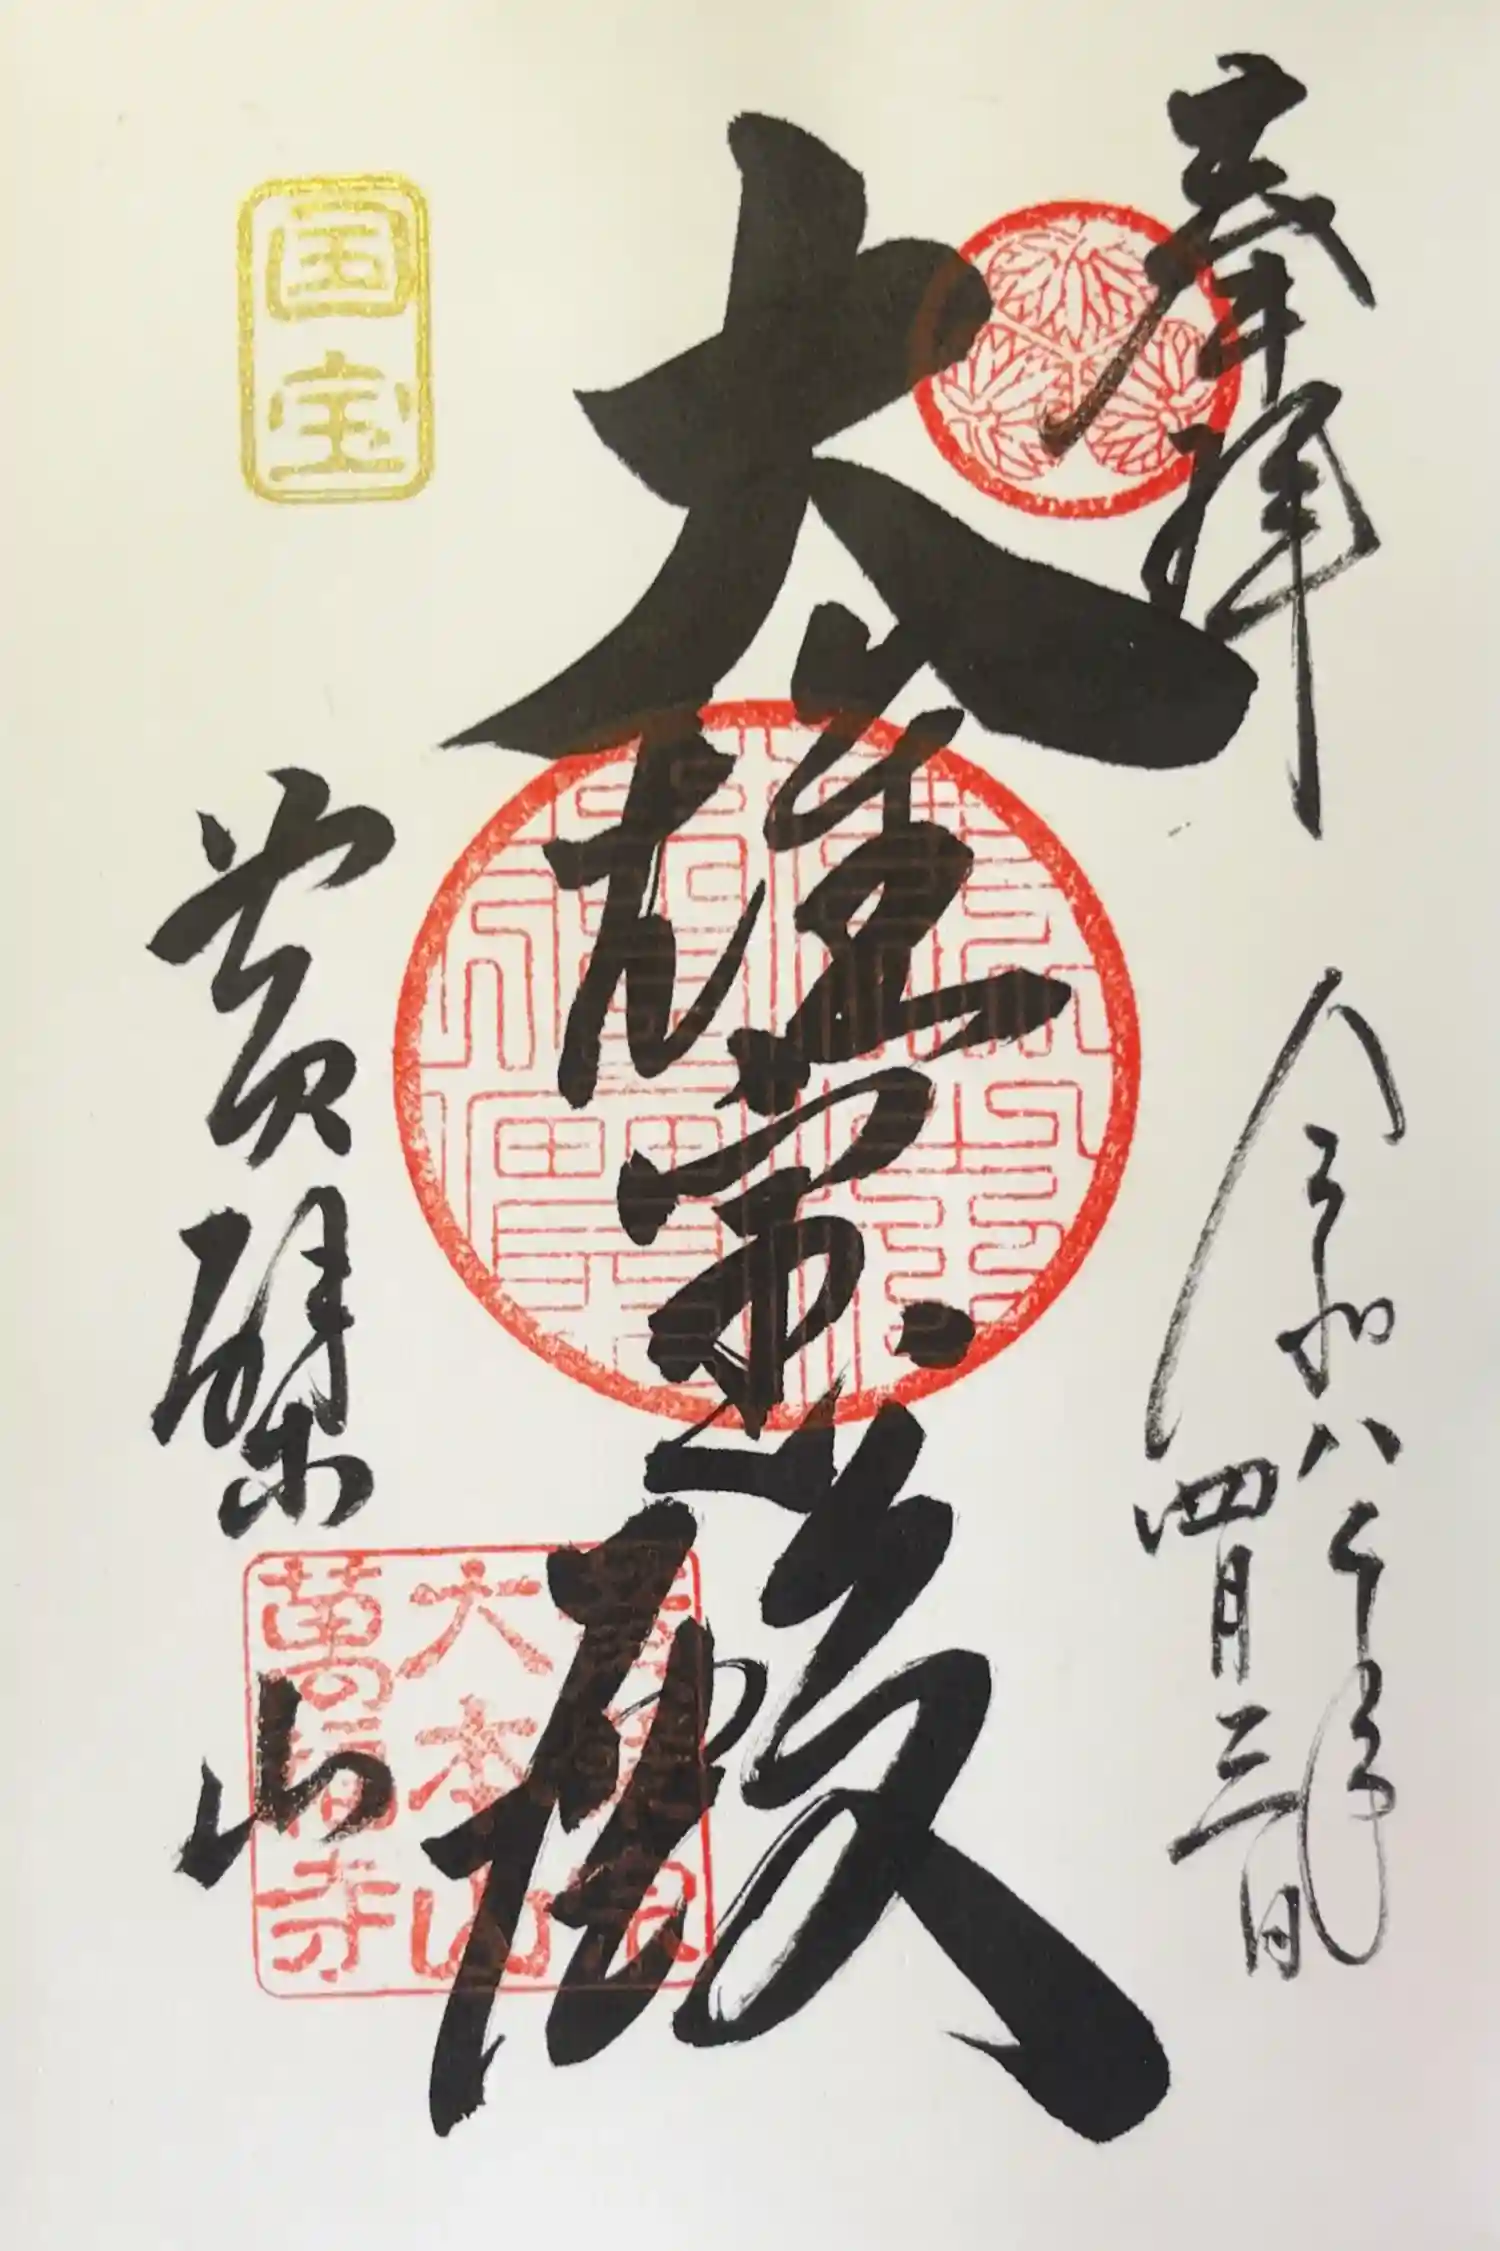 奉拝
令和八年
四月三日
大雄寳殿
国宝
黄檗山
黄檗宗
大本山
萬福寺